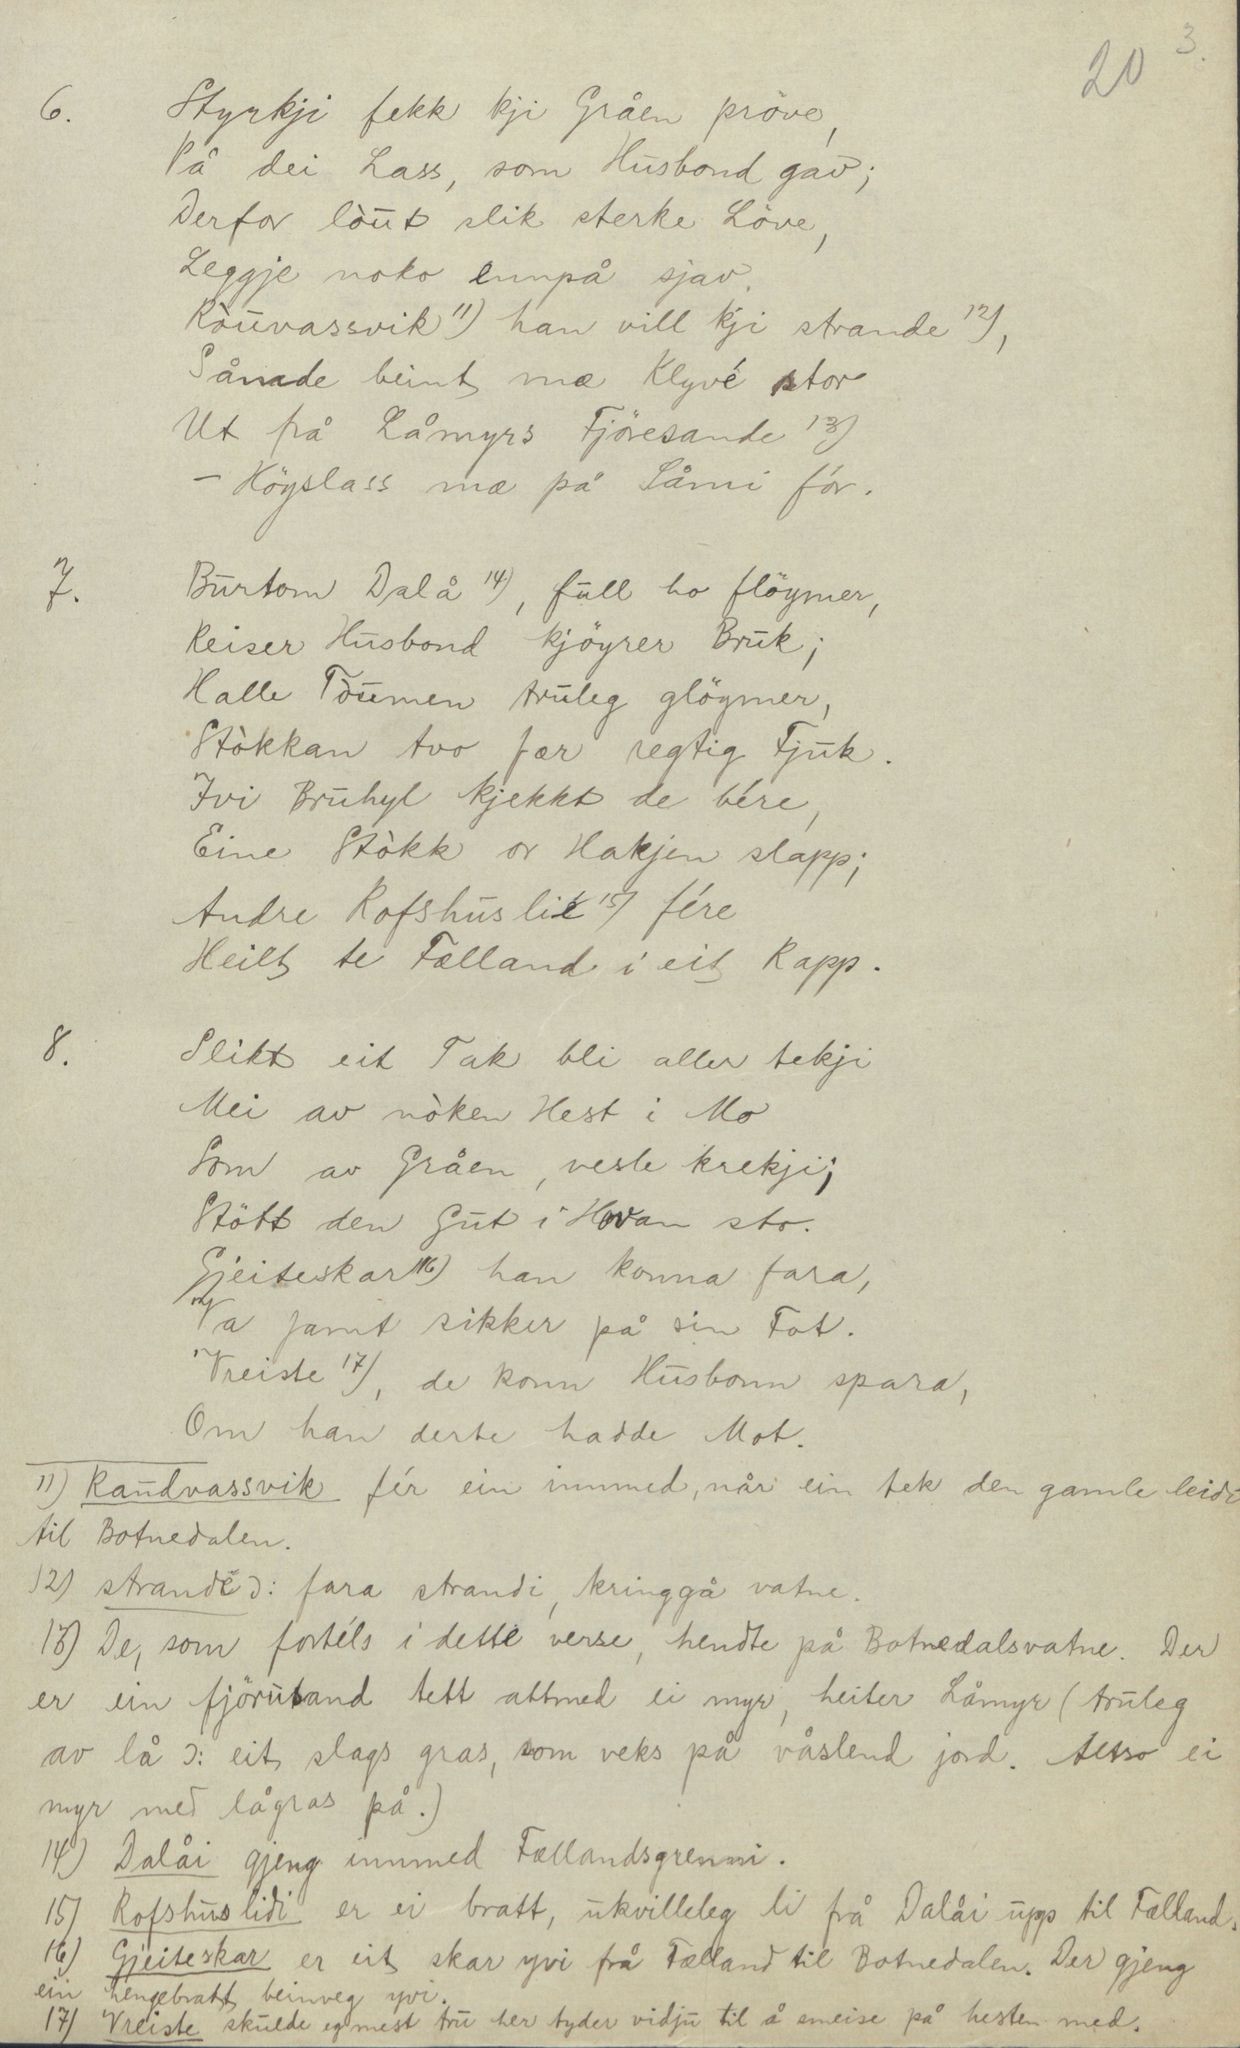 20 3.
6. Styrkji fekk kji Gråen pröve,
På dei Lass, som Husbond gav;
Derfor lòut slik sterke Löve,
Leggje noko ennpå sjav.
Ròuvassvik 11) han vill kji strande 12),
Sånade beint mæ Klyvé stor
Ut frå Låmyrs Fjöresande 13)
- Högslass mæ på Låmi fór.
7. Burtom Dalå 14), full ho flöymer,
Reiser Husbond kjöyrer Bruk;
Halle Tòumen truleg glöymer,
Stòkkan tvo fær regtig Fjuk.
Ivi Bruhyl kjekkt de bére,
Eine Stòkk or Hakjen slapp;
Andre Rofshuslié 15) fére
Heilt te Fælland i eit Rapp.
8. Slikt eit Tak bli aller tekji
Mei av nòken Hest i Mo
Som av Gråen, vesle krekji;
Stött den Gut i Hovan sto.
Gjeiteskar 16) han konna fara,
Va jamt sikker på sin Fot.
Vreiste 17), de konn Husbonn spara,
Om han derte hadde Mot.
11) Raudvassvik fér ein innmed, når ein tek den gamle leidi
til Botnedalen.
12) strandé ɔ: fara strandi, kringgå vatne.
13) De, som fortéls i detté verse, hendte på Botnedalsvatne. Der
er ein fjörusand tett attmed ei myr, heiter Låmyr (truleg
av lå ɔ: eit slags gras, som veks på våslend jord. Altso ei
myr med lågras på.)
14) Dalåi gjeng innmed Fællandsgrenni.
15) Rofshuslidi er ei bratt, ukvilleleg li frå Dalåi upp til Fælland.
16) Gjeiteskar er eit skar yvi frå Fælland til Botnedalen. Der gjeng
ein hengebratt beinveg yvi.
17) Vreiste skulde eg mest tru her tyder vidju til å smeise på hesten med.